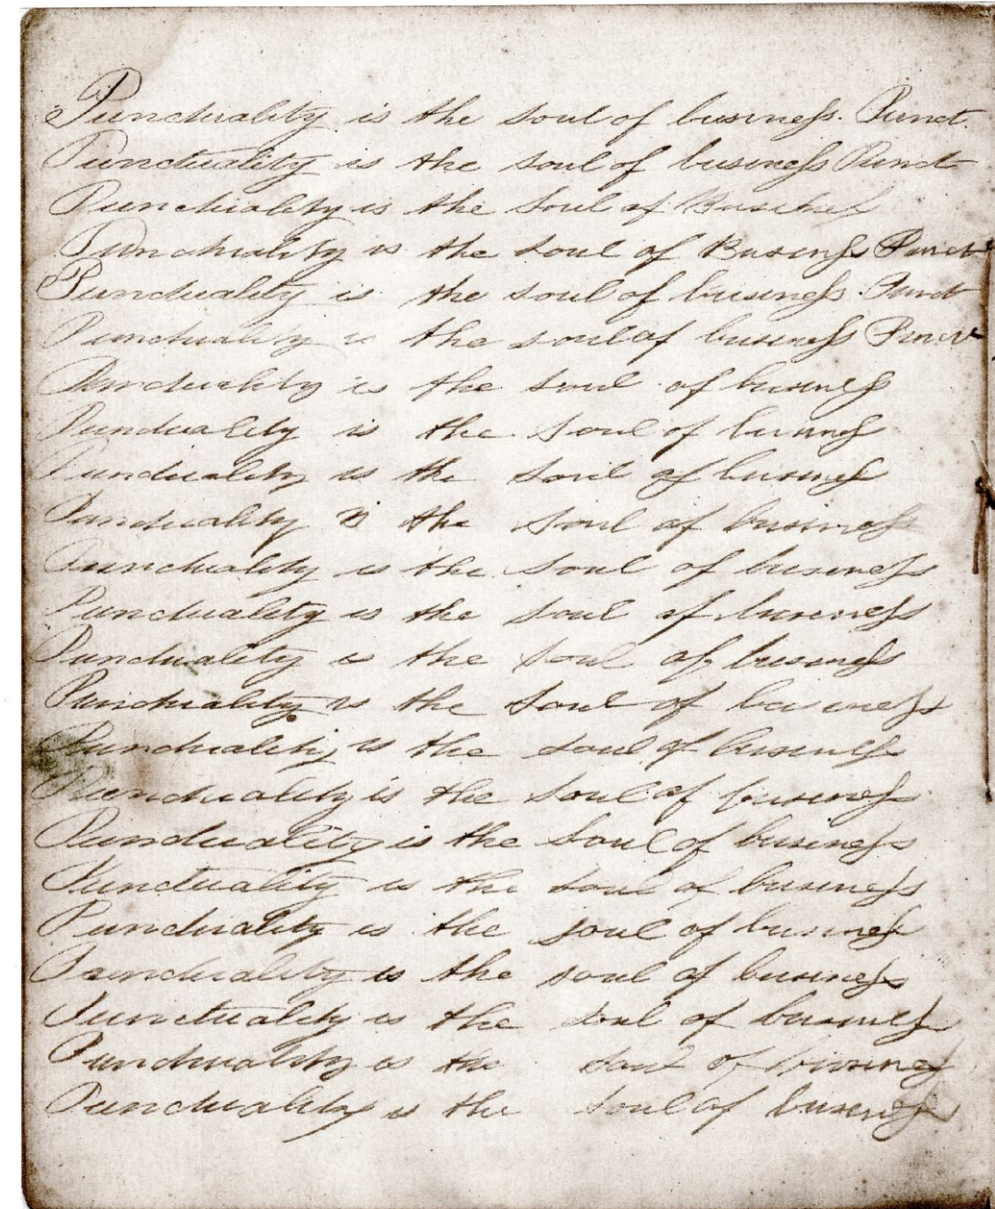 Punctuality is the soul of business. Punct.
Punctuality is the soul of business Punct
Punctuality is the soul of
Punctuality is the soul of Business Punct
Punctuality is the soul of business Punct
Punctuality is the soul of business Punct
Punctuality is the soul of business
Punctuality is the soul of business
Punctuality is the soul of business
Punctuality is the soul of business
Punctuality is the soul of business
Punctuality is the soul of business
Punctuality is the soul of business
Punctuality is the soul of business
Punctuality is the soul of business
Punctuality is the soul of business
Punctuality is the soul of business
Punctuality is the soul of business
Punctuality is the soul of business
Punctuality is the soul of business
Punctuality is the soul of business
Punctuality is the soul of business
Punctuality is the soul of business